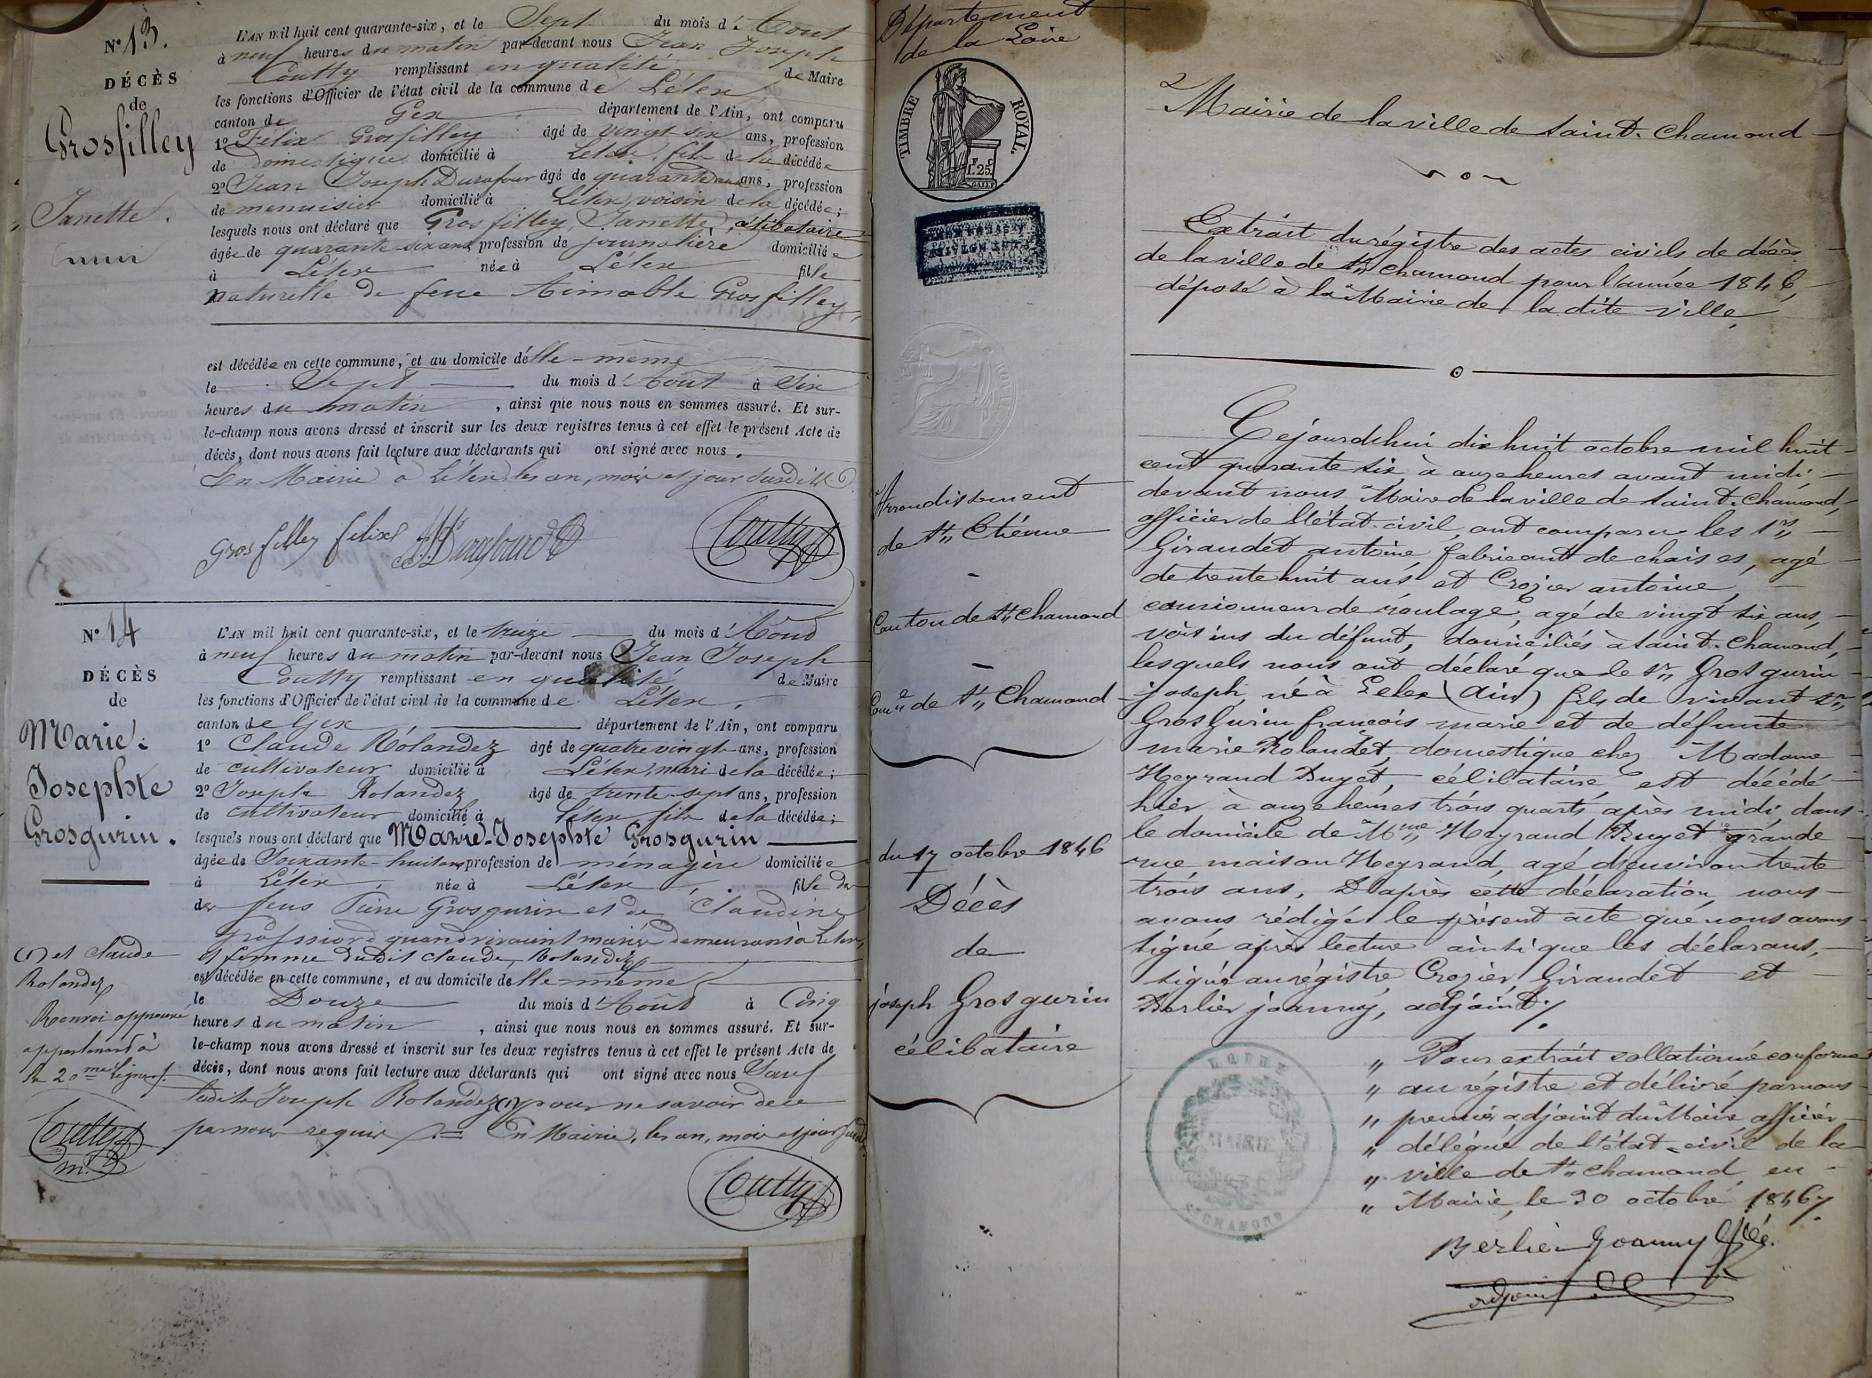 N° 13.
DÉCÈS
de
Grosfilley
Janette.
L'AN mil huit cent quarante-six, et le Sept du mois d'Aout
à neuf heures du matin par-devant nous Jean Joseph
Coutty remplissant en qualité de Maire
les fonctions d'Officier de l'état civil de la commune de Lélex
canton de Gex département de l'Ain, ont comparu
1° Félix Grosfilley âgé de vingt six ans, profession
de domestique domicilié à Lélex, fils de la décédée
2° Jean Joseph Durafour âgé de quarante ans, profession
de menuisier domicilié à Lélex, voisin de la décédée;
lesquels nous ont déclaré que Grosfilley Janette, célibataire
âgée de quarante six ans profession de journalière domiciliée
à Lélex née à Lélex fille
naturelle de feue Aimable Grosfilley,
est décédée en cette commune, et au domicile d'elle-même
le Sept du mois d'Aout à Six
heures du matin, ainsi que nous nous en sommes assuré. Et sur-
le-champ nous avons dressé et inscrit sur les deux registres tenus à cet effet le présent Acte de
décès, dont nous avons fait lecture aux déclarants qui ont signé avec nous.
En Mairie à Lélex les an, mois et jour susdits
Grosfilley felix Durafour Coutty
N° 14
DÉCÈS
de
Marie-
Josephte
Grosgurin.
L'AN mil huit cent quarante-six, et le treize du mois d'Aout
à neuf heures du matin par-devant nous Jean Joseph
Coutty remplissant en qualité de Maire
les fonctions d'Officier de l'état civil de la commune de Lélex,
canton de Gex, département de l'Ain, ont comparu
1° Claude Rolandez âgé de quatre vingt ans, profession
de cultivateur domicilié à Lélex, mari de la décédée;
2° Joseph Rolandez âgé de trente-sept ans, profession
de cultivateur domicilié à Lélex, fils de la décédée;
lesquels nous ont déclaré que Marie-Josephte Grosgurin
âgée de Soixante-huit ans profession de ménagère domiciliée
à Lélex, née à Lélex, fille
des feus Pierre Grosgurin et de Claudine
Grosfilley quand vivaient mariés demeurant à Lélex,
et femme dudit Claude Rolandez
est décédée en cette commune, et au domicile d'elle même
le Douze du mois d'Aout à Cinq
heures du matin, ainsi que nous nous en sommes assuré. Et sur-
le-champ nous avons dressé et inscrit sur les deux registres tenus à cet effet le présent Acte de
décès, dont nous avons fait lecture aux déclarants qui ont signé avec nous Sauf
ledit Joseph Rolandez (1) pour ne savoir de ce
par nous requis. En Mairie, les an, mois et jour susdits
Coutty
(1) et Claude
Rolandez
Renvoi approuvé
appartenant à
la 20me ligne
Coutty
Département
de la Loire
TIMBRE ROYAL.
F. C
1.25
Arrondissement
de St. Etienne
Canton de St. Chamond
Comne de St. Chamond
du 17 octobre 1846
Décès
de
joseph Grosgurin
célibataire
Mairie de la ville de Saint-Chamond
Extrait du régistre des actes civils de décès
de la ville de St. Chamond pour l'année 1846,
déposé à la Mairie de la dite ville,
Cejourdhui dix huit octobre mil huit
cent quarante six, à onze heures avant midi,
devant nous Maire de la ville de Saint-Chamond,
officier de l'état-civil, ont comparu les Srs
Giraudet antoine, fabricant de chaises, agé
de trente huit ans et Crozier antoine,
camionneur de roulage, agé de vingt six ans,
voisins du défunt, domiciliés à Saint-Chamond,
lesquels nous ont déclaré que le Sr Grosgurin
joseph, né à Lelex (Ain) fils de vivant Sr
Grosgurin françois marie et de défunte
marie Rolandet, domestique chez Madame
Heyraud Duyet, célibataire, est décédé
hier à onze heures trois quarts après midi, dans
le domicile de Mme Heyraud Duyet grande
rue maison Heyraud, agé d'environ trente
trois ans, D'après cette déclaration, nous
avons rédigé le présent acte que nous avons
signé après lecture ainsi que les déclarans,
signé au régistre, Crozier, Giraudet et
Berlier joanny, adjoint.
„ Pour extrait collationné conforme
„ au régistre et délivré par nous
„ premier adjoint du Maire, officier
„ délégué de l'état-civil de la
„ ville de St. Chamond, en
„ Mairie, le 30 octobre 1846.
Berlier Joanny
adjoint
MAIRIE
ST CHAMOND